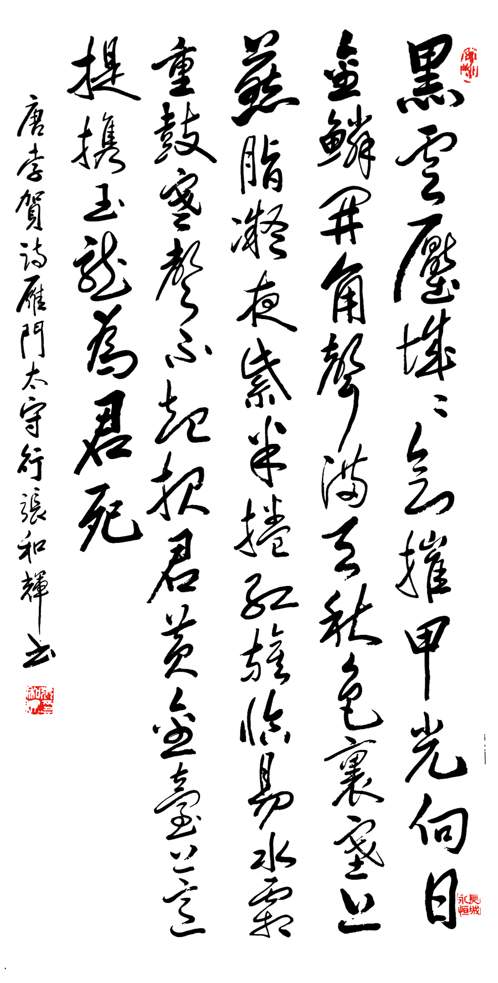 黑雲壓城〻欲摧甲光向日
金鱗開角聲滿天秋色裏塞上
燕脂凝夜紫半捲紅旗臨易水霜
重鼓寒聲不起報君黃金臺上意
提携玉龍為君死
唐李賀詩雁門太守行張和輝书
長城
永恒